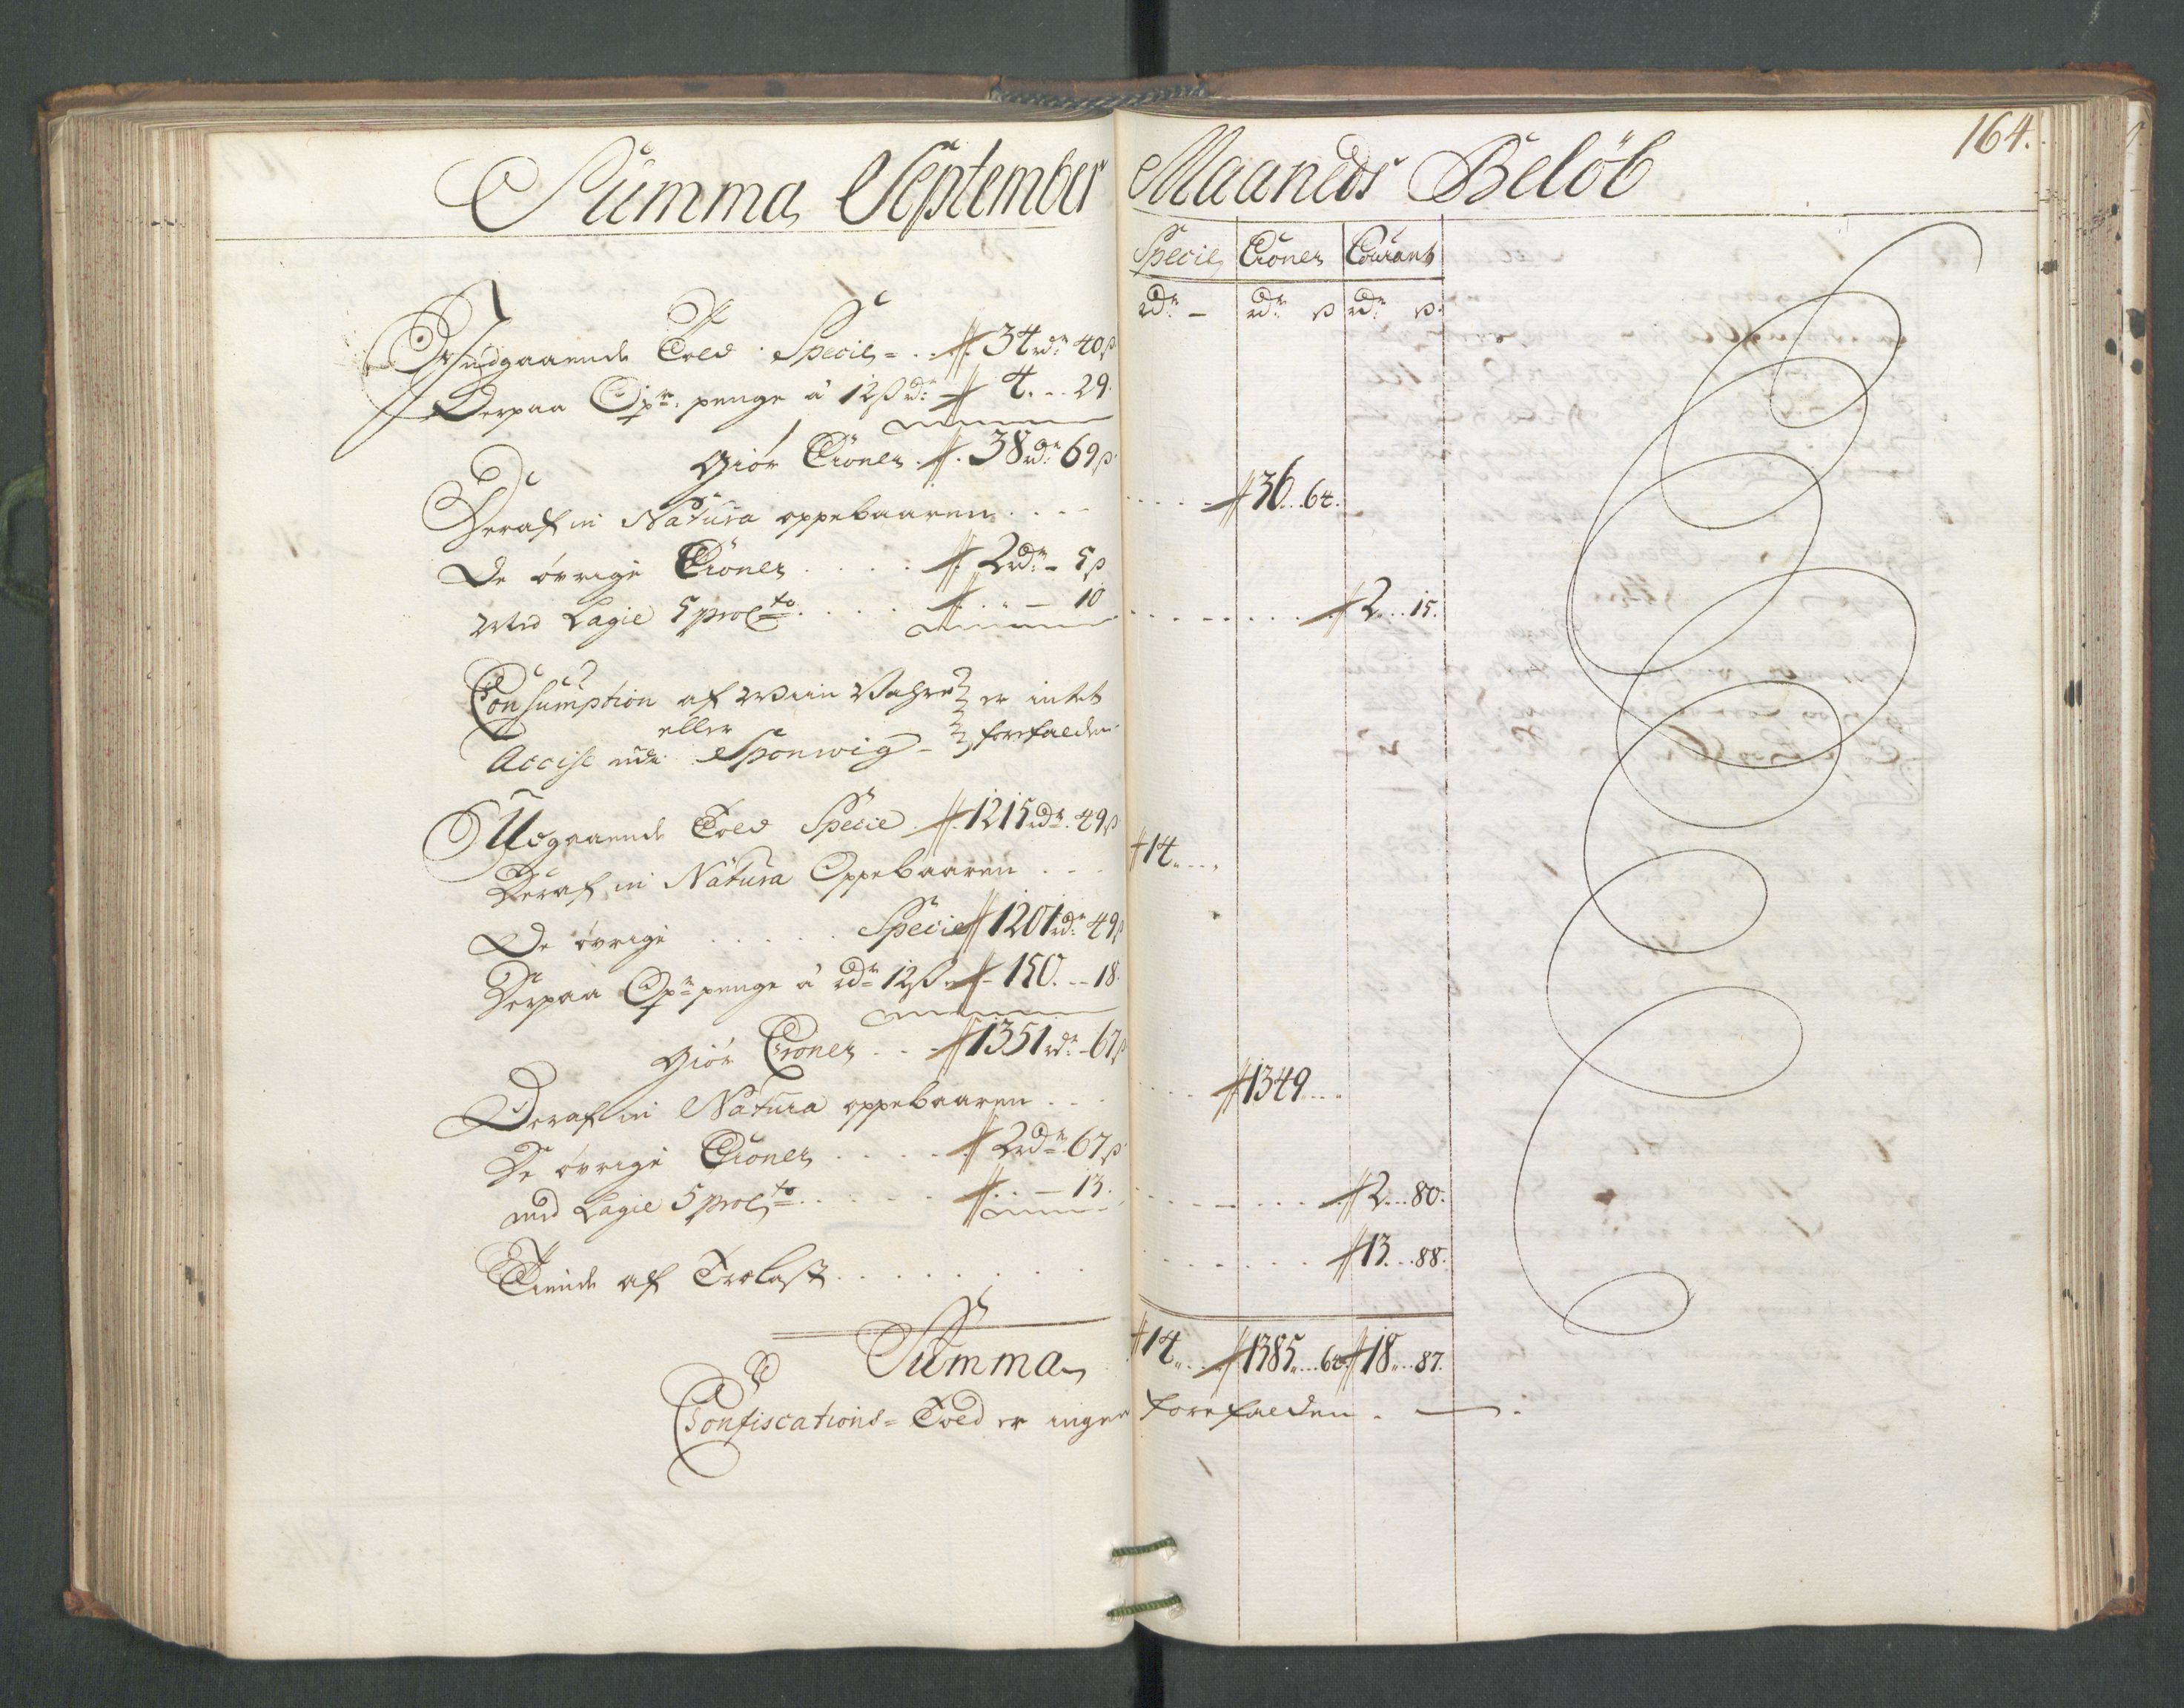 164.
Summa September Maaneds Beløb
Specie Croner Courant
rdr – rdr ß rdr ß
Indgaaende Told Specie = . . # 34 rdr 40 ß
Derpaa Opr. penge á 12 ß rdr # 4 . . 29.
Giör Croner # 38 rdr 69 ß
Deraf in Natura oppebaaren . . . . # 36 . . 64.
De övrige Croner . . . . # 2 rdr – 5 ß
Med Lagie 5 proCto . . . . # . . – 10 . . . . # 2 . . 15.
Consumption af Wiin Vahre er intet
eller
Accise udi Sponwig – forefalden
Udgaaende Told Specie # 1215 rdr 49 ß
Deraf in Natura Oppebaaren . . . # 14 . . .
De övrige . . . . . Specie # 1201 rdr 49 ß
Derpaa Opr penge á rdr 12 ß # 150 . . 18.
Giör Croner . . # 1351 rdr 67 ß
Deraf in Natura oppebaaren . . . . # 1349 . . .
De övrige Croner . . . . # 2 rdr 67 ß
med Lagie 5 proCto . . . . # . . – 13. . . . . # 2 . . 80.
Tiende af Trælast . . . . . . . . # 13 . . 88.
Summa # 14 . . # 1385 . . 64 # 18 . . 87.
Confiscations = Told er ingen forefalden . — .